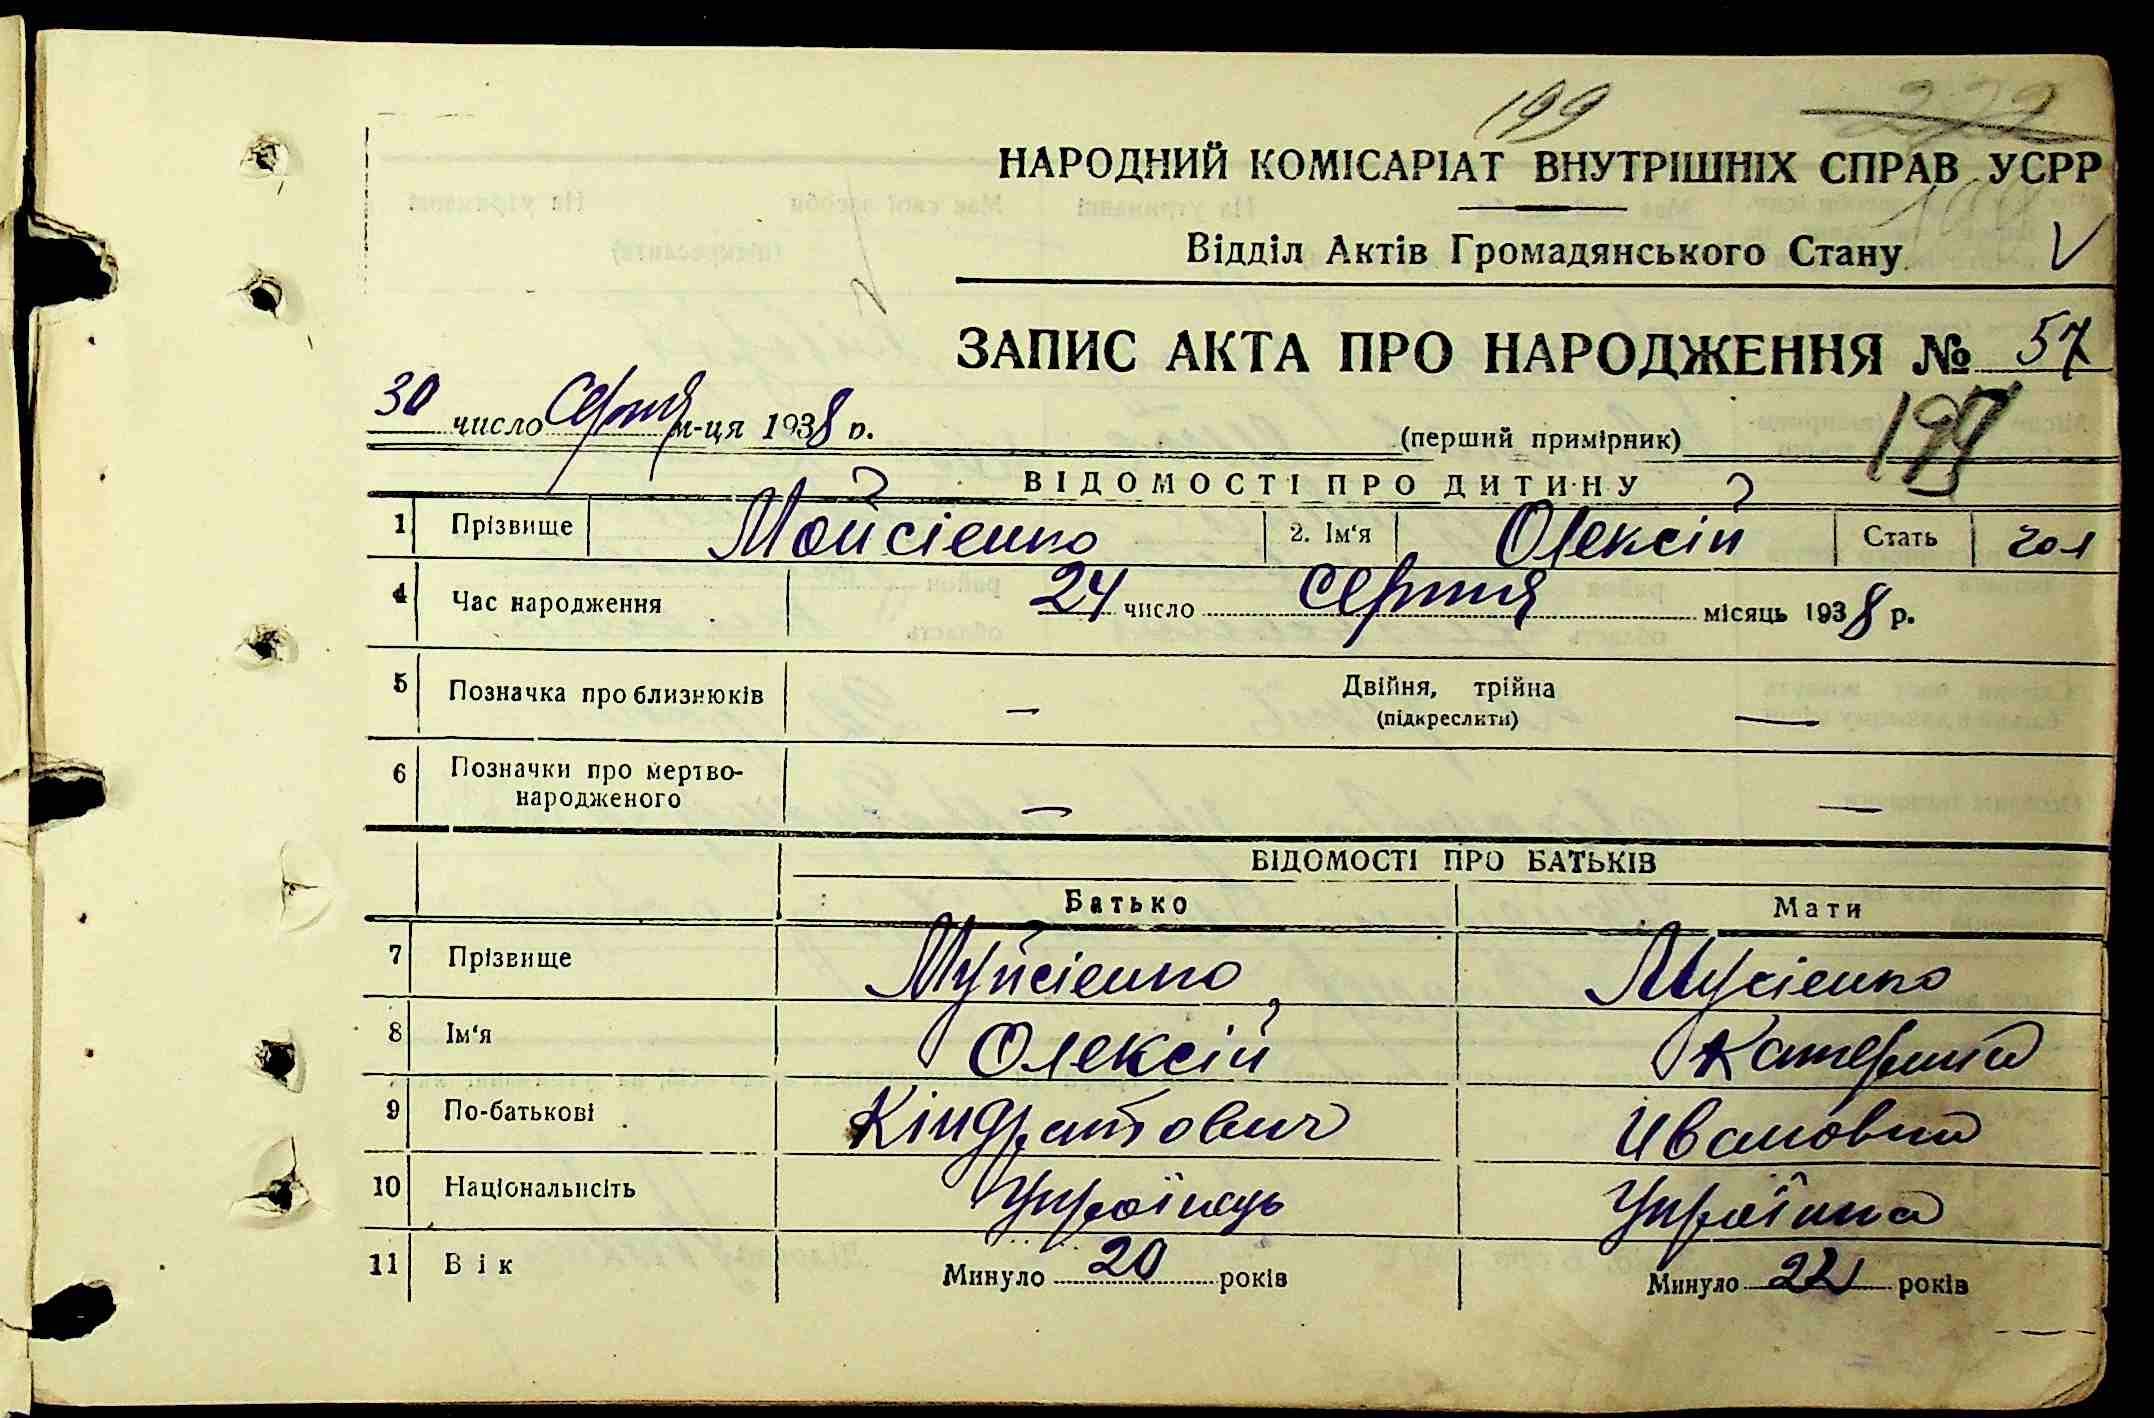 199
272
НАРОДНИЙ КОМІСАРІАТ ВНУТРІШНІХ СПРАВ УСРР
Відділ Актів Громадянського Стану V
ЗАПИС АКТА ПРО НАРОДЖЕННЯ № 57
30 число Серпня м-ця 1938 р.
(перший примірник)
ВІДОМОСТІ ПРО ДИТИНУ
1 Прізвище Мойсієнко 2. Ім'я Олексій Стать чол
4 Час народження 24 число серпня місяць 1938 р.
5 Позначка про близнюків — Двійня, трійна —
(підкреслити)
6 Позначки про мертво-
народженого — —
ВІДОМОСТІ ПРО БАТЬКІВ
Батько Мати
7 Прізвище Муйсієнко Мусієнко
8 Ім'я Олексій Катерина
9 По-батькові Кіндратович Ивановна
10 Національність Українець Українка
11 Вік Минуло 20 років Минуло 22 років